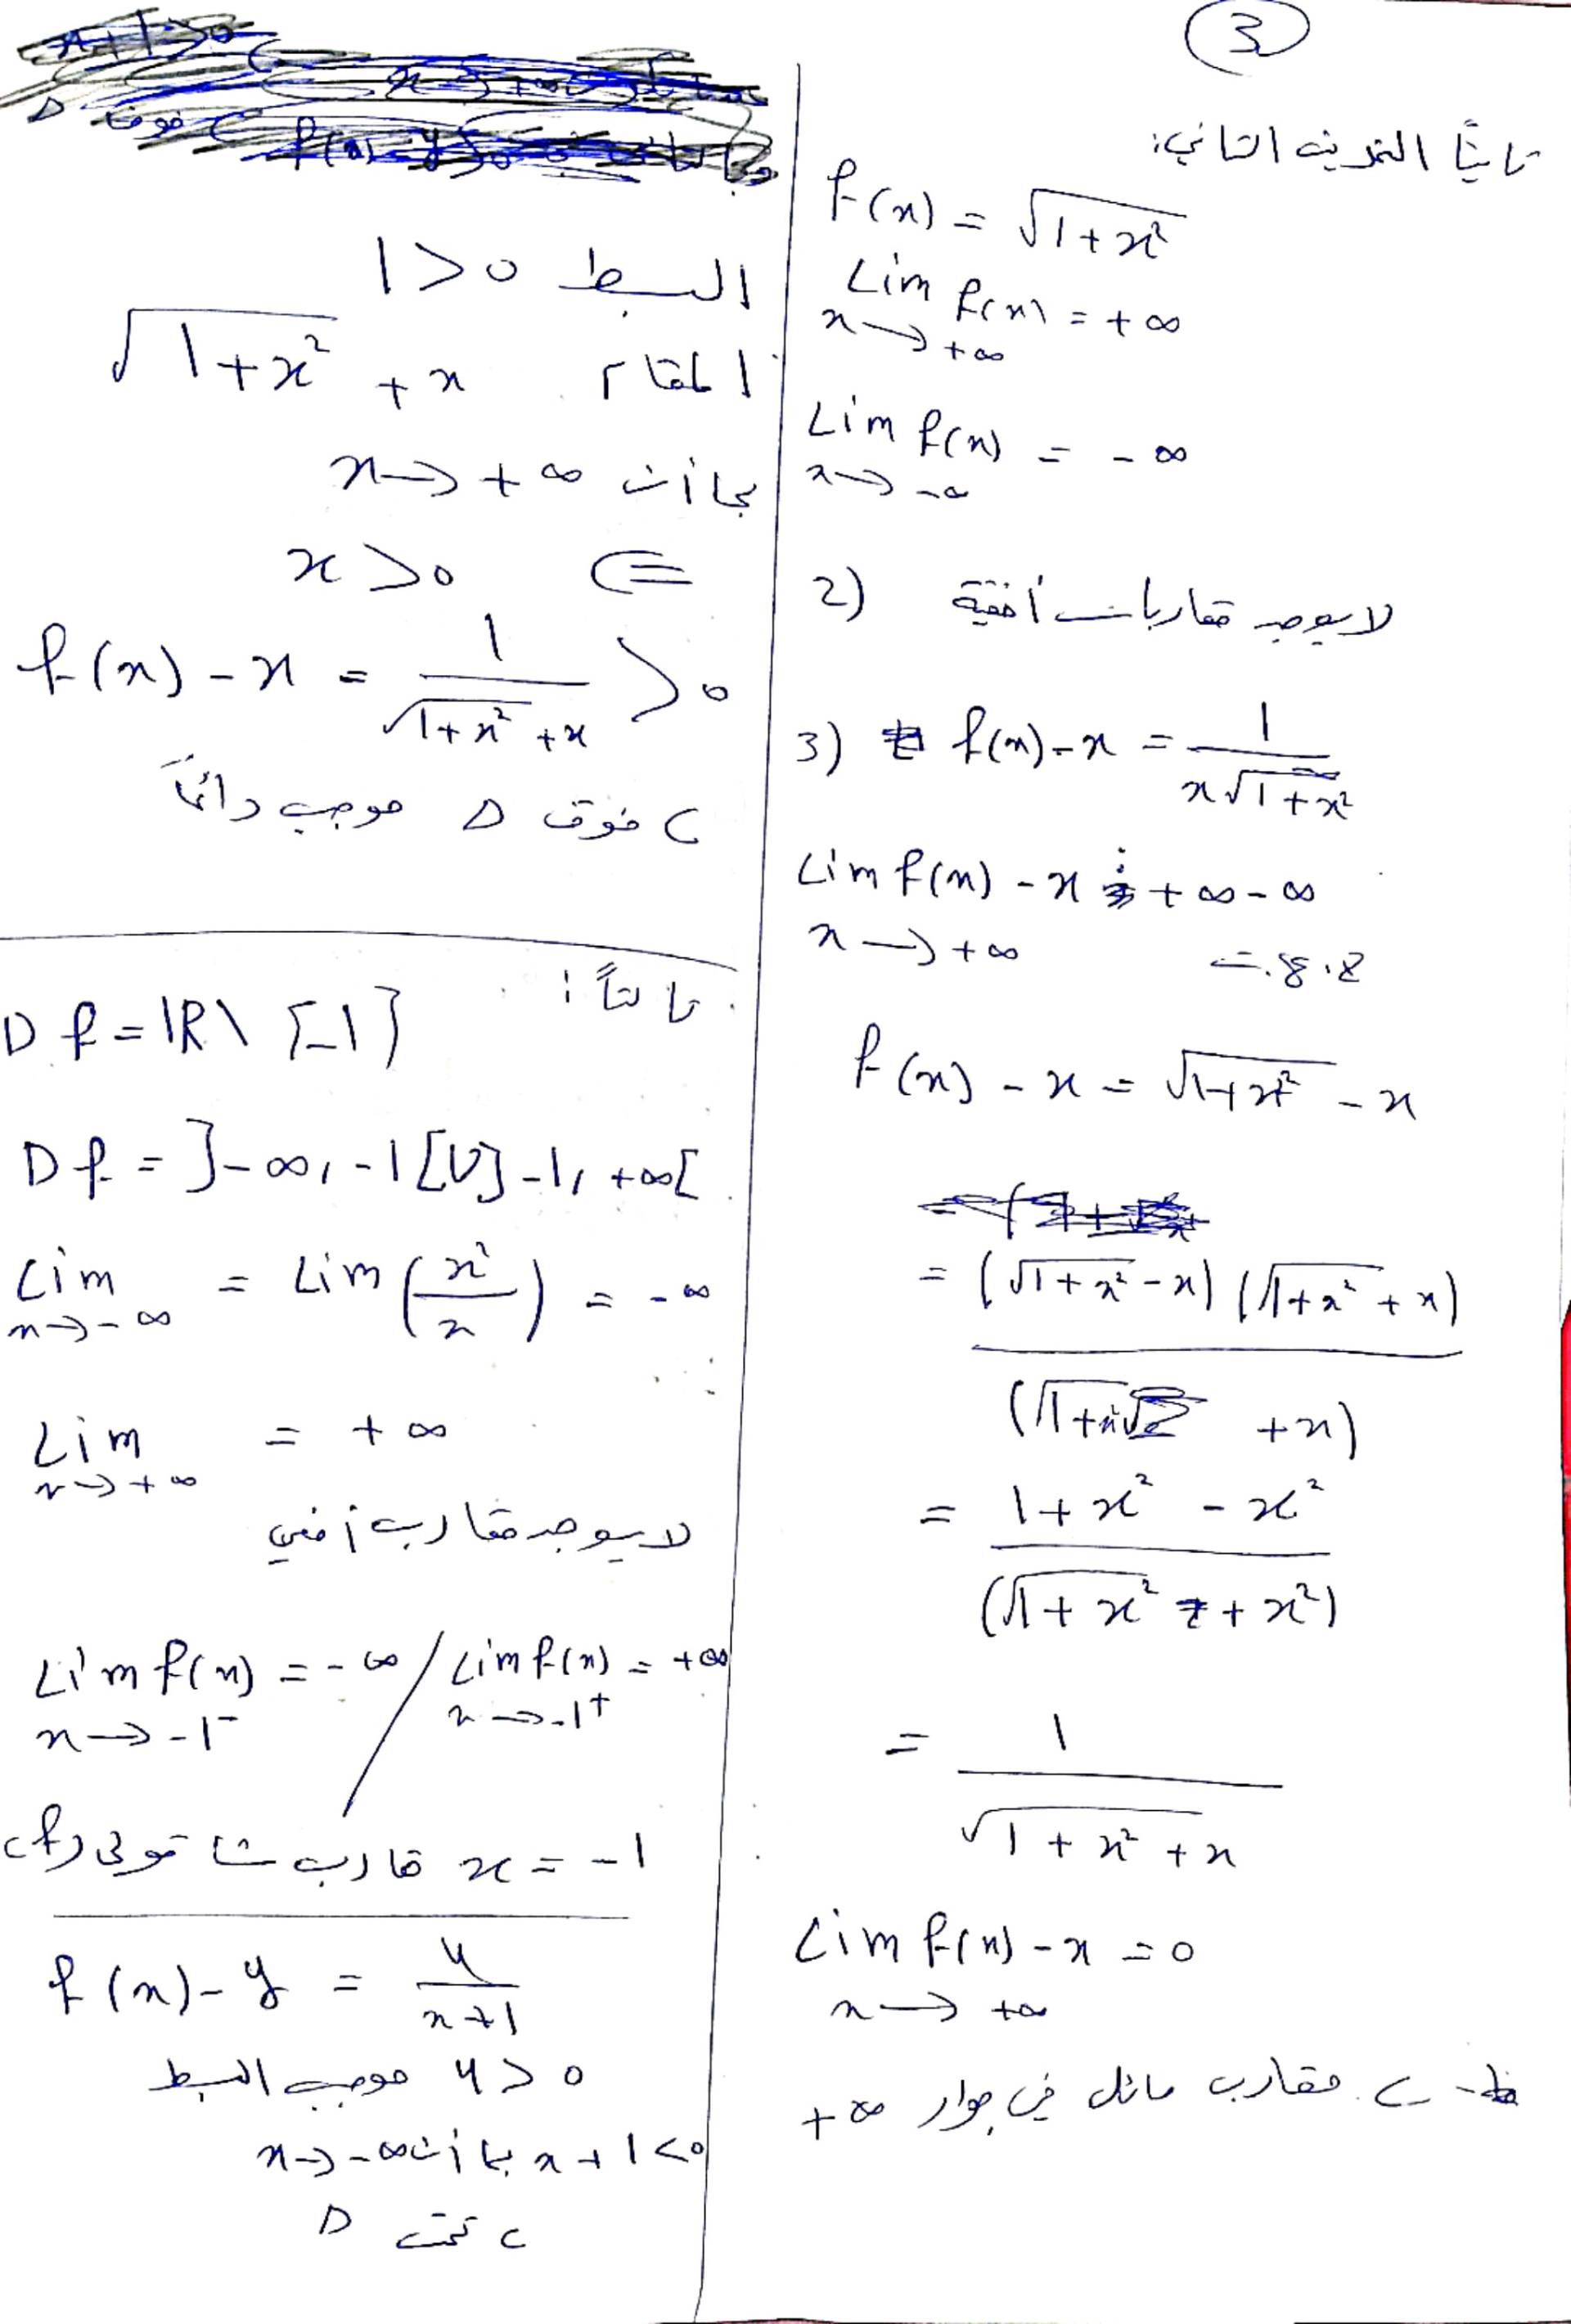 3
ثانياً التمرين الثاني:
f(x) = √(1+x²)
Lim f(x) = +∞
x→+∞
Lim f(x) = -∞
x→-∞
2) لا يوجد مقاربات أفقية
3) f(x)-x = 1/(x√(1+x²))
Lim f(x) - x = +∞-∞
x→+∞
ح.ع.ت
f(x) - x = √(1+x²) - x
= (√(1+x²) - x)(√(1+x²) + x)
(√(1+x²) + x)
= 1+x² - x²
(√(1+x²) + x²)
= 1
√(1+x²) + x
Lim f(x) - x = 0
x→+∞
مقارب مائل في جوار +∞
البسط 1>0
المقام √(1+x²) + x
بما أن x→+∞
⇐ x>0
f(x) - x = 1/(√(1+x²) + x) > 0
C فوق Δ موجب دائماً
ثالثاً:
Df = IR\{-1}
Df = ]-∞, -1[U]-1, +∞[
Lim = Lim (x²/x) = -∞
x→-∞
Lim = +∞
x→+∞
لا يوجد مقارب أفقي
Lim f(x) = -∞ / Lim f(x) = +∞
x→-1⁻ x→-1⁺
x = -1 مقارب شاقولي
f(x) - y = 4/(x+1)
4>0 موجب البسط
x+1<0 بما أن x→-∞
C تحت Δ